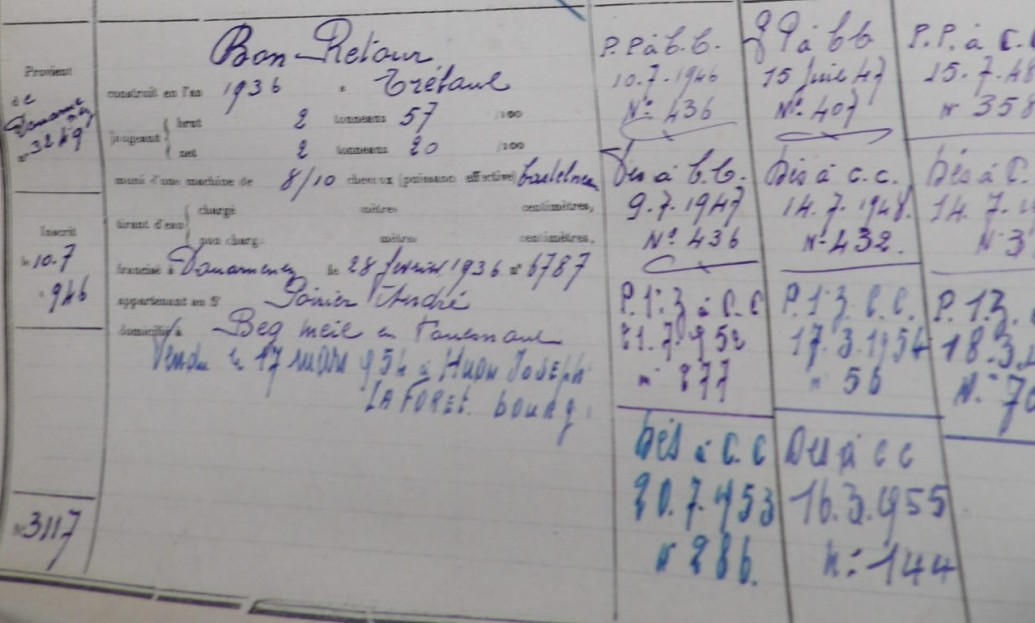 Provient
de
Douarnenez
n° 3249
Inscrit
le 10.7
946
n° 3117
Bon-Retour
construit en l'an 1936 à Tréfaul
jaugeant
brut 2 tonneaux 57 /100
net 2 tonneaux 20 /100
muni d'une machine de 8/10 chevaux (puissance effective)
tirant d'eau
chargé mètres centimètres,
non chargé mètres centimètres,
francisé à Douarnenez le 28 février 1936 n° 6787
appartenant au Sr Poirier André
domicilié à Beg meil en Fouesnant
Vendu le 17 mars 954 à Huon Joseph
LA FORET. bourg.
P.P à b.b.
10.7.1946
N° 436
Dés à b.b.
9.7.1947
N° 436
P.1.3 à C.C
21.7.952
n° 277
Dés à C.C
20.7.953
n 286.
P à bb
15 Juil 47
N° 407
Dés à C.C.
14.7.1948.
N° 432.
P.1.3. C.C.
17.3.1954
n 56
Des à C C
16.3.1955
n: 144
P.P. à C.
15.7.48
n° 35
Dés à C.
14.7.
N° 3
P.13.
18.3.
N° 7